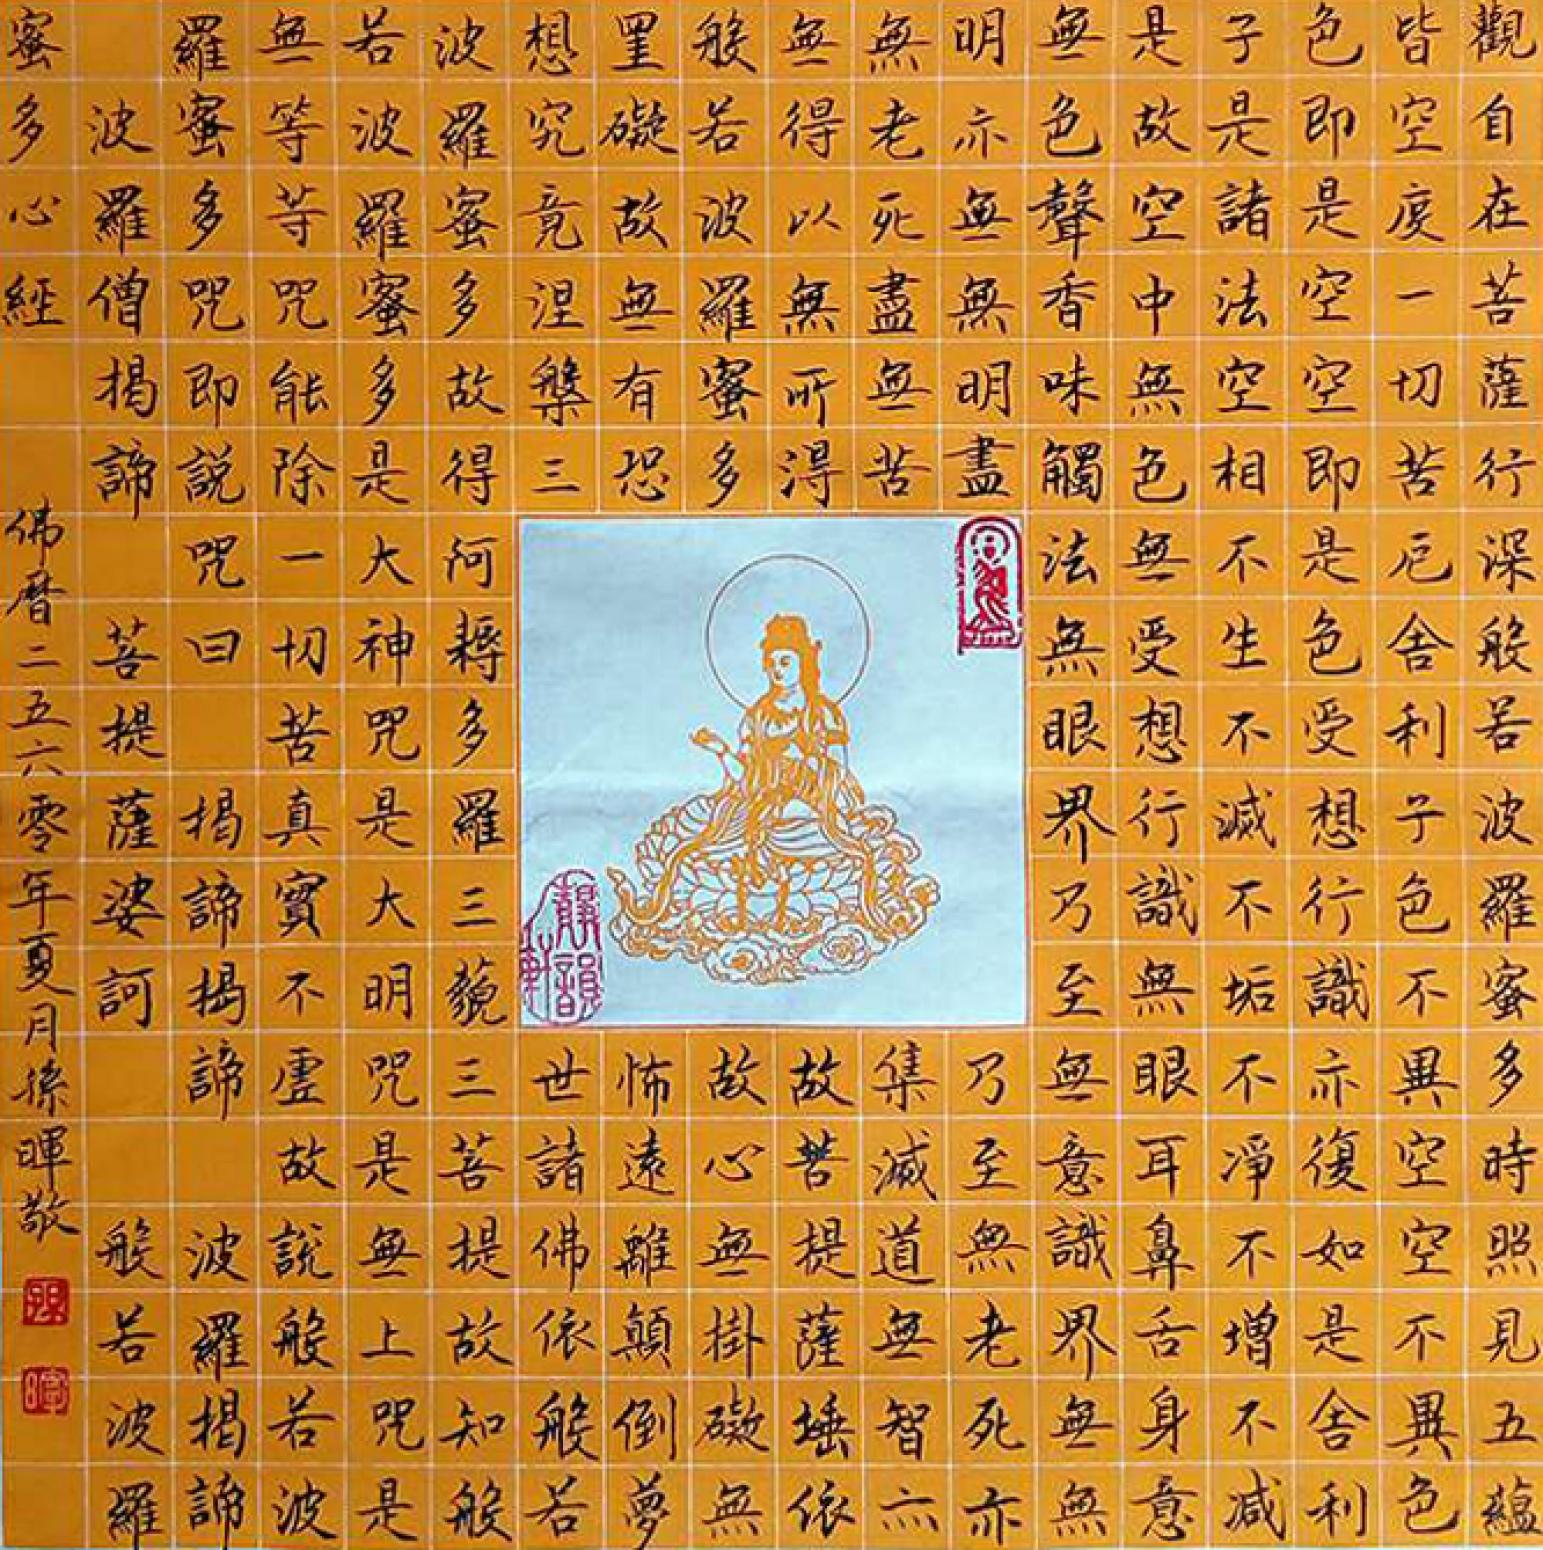 觀自在菩薩行深般若波羅蜜多時照見五蘊
皆空度一切苦厄舍利子色不異空空不異色
色即是空空即是色受想行識亦復如是舍利
子是諸法空相不生不滅不垢不淨不增不減
是故空中無色無受想行識無眼耳鼻舌身意
無色聲香味觸法無眼界乃至無意識界無無
明亦無無明盡乃至無老死亦
無老死盡無苦集滅道無智亦
無得以無所得故菩提薩埵依
般若波羅蜜多故心無掛礙無
罣礙故無有恐怖遠離顛倒夢
想究竟涅槃三世諸佛依般若
波羅蜜多故得阿耨多羅三藐三菩提故知般
若波羅蜜多是大神咒是大明咒是無上咒是
無等等咒能除一切苦真實不虛故說般若波
羅蜜多咒即說咒曰 揭諦揭諦 波羅揭諦
波羅僧揭諦 菩提薩婆訶 般若波羅
蜜多心經 佛暦二五六零年夏月孫暉敬
靜韻軒
孫
暉